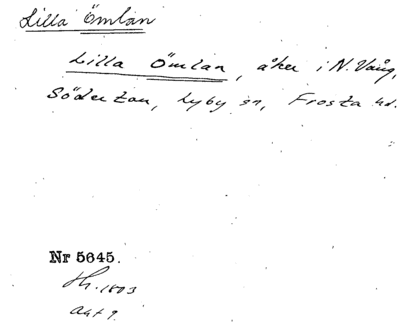 Lilla Ömlan
Lilla Ömlan, åker i N. Vång,
Södertou, Lyby sn, Frosta hd.
Nr 5645.
Sk. 1803
akt 9.